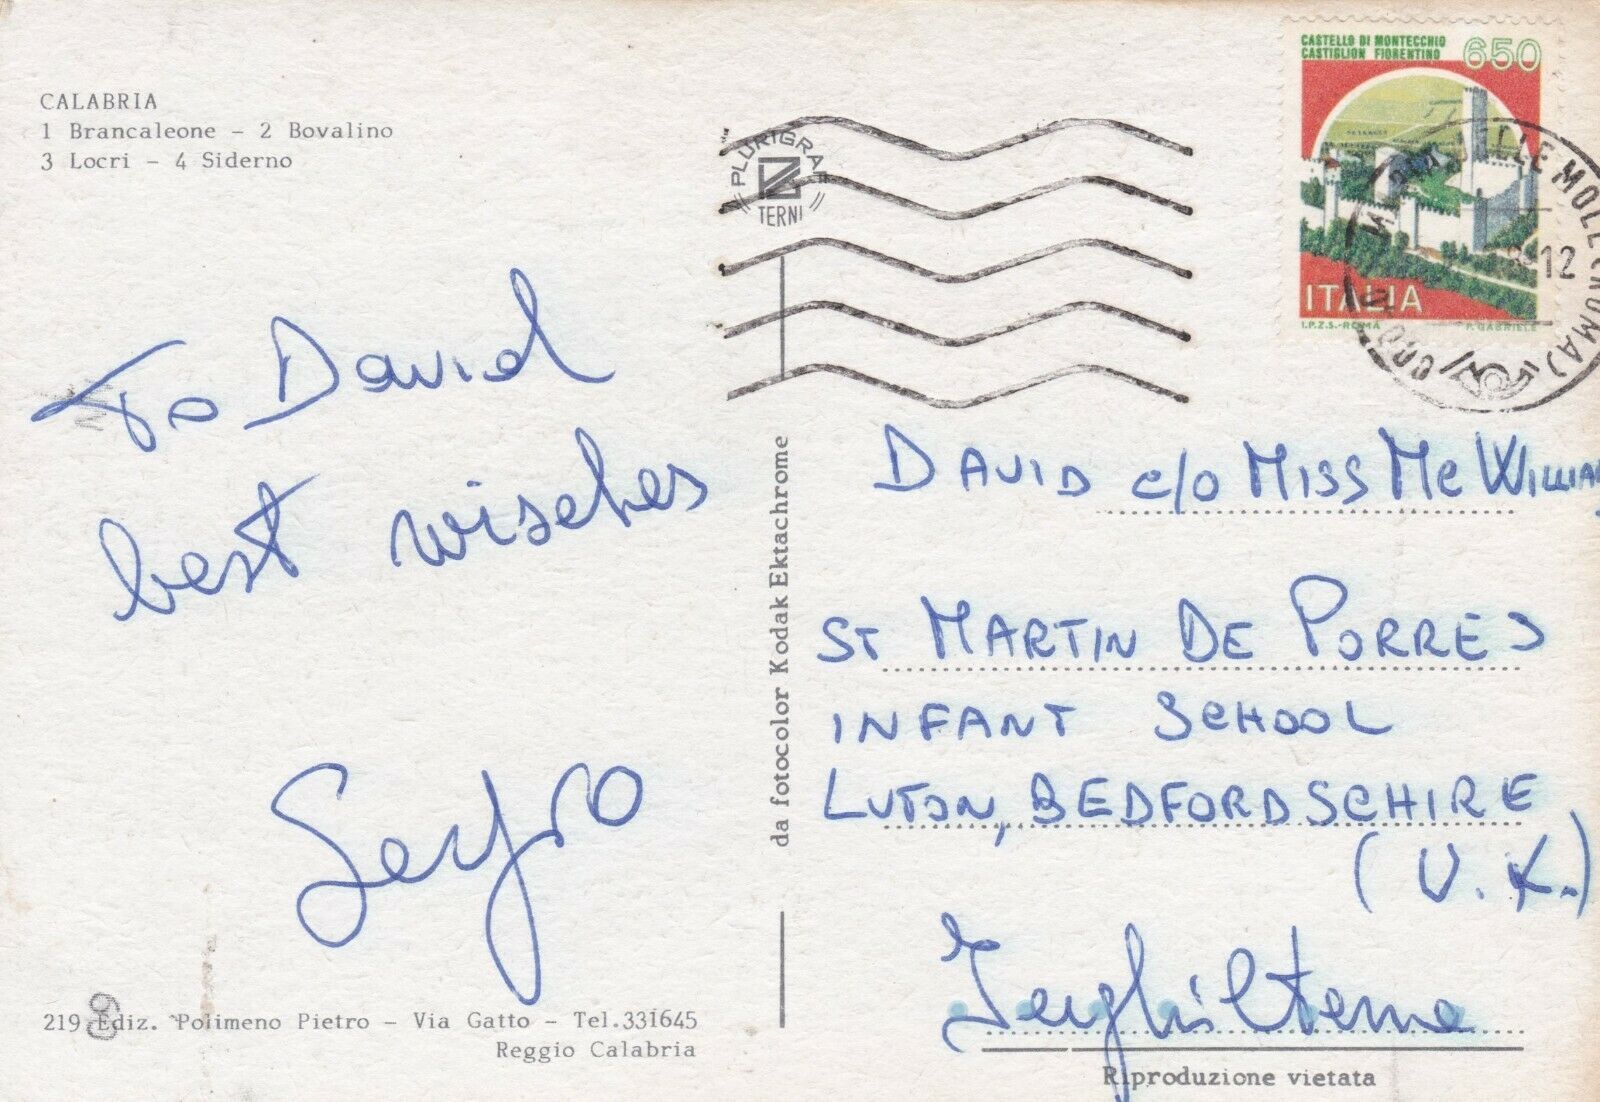 CALABRIA
1 Brancaleone - 2 Bovalino
3 Locri - 4 Siderno
PLURIGRAF
TERNI
CASTELLO DI MONTECCHIO
CASTIGLION FIORENTINO
650
ITALIA
I.P.Z.S.-ROMA P. GABRIELE
12
To David
best wisches
Sergio
da fotocolor Kodak Ektachrome
DAVID c/o MISS Mc WILLIAM
ST MARTIN DE PORRES
INFANT SCHOOL
LUTON, BEDFORDSCHIRE
(U.K.)
Inghilterra
219 Ediz. Polimeno Pietro - Via Gatto - Tel.331645
Reggio Calabria
Riproduzione vietata